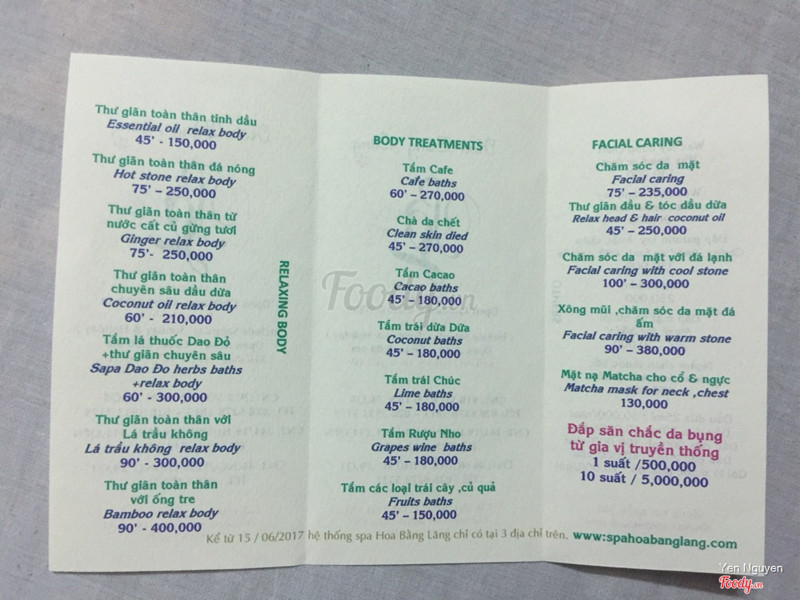 Thư giãn toàn thân tinh dầu
Essential oil relax body
45' - 150,000
Thư giãn toàn thân đá nóng
Hot stone relax body
75' – 250,000
Thư giãn toàn thân từ
nước cất củ gừng tươi
Ginger relax body
75'- 250,000
Thư giãn toàn thân
chuyên sâu dầu dừa
Coconut oil relax body
60' - 210,000
Tắm lá thuốc Dao Đỏ
+thư giãn chuyên sâu
Sapa Dao Do herbs baths
+relax body
60' - 300,000
Thư giãn toàn thân với
Lá trầu không
Lá trầu không relax body
90' - 300,000
Thư giãn toàn thân
với ống tre
Bamboo relax body
90' - 400,000
RELAXING BODY
BODY TREATMENTS
Tắm Cafe
Cafe baths
60' – 270,000
Chà da chết
Clean skin died
45' – 270,000
Tắm Cacao
Cacao baths
45' – 180,000
Tắm trái dừa Dứa
Coconut baths
45' – 180,000
Tắm trái Chúc
Lime baths
45' – 180,000
Tắm Rượu Nho
Grapes wine baths
45' – 180,000
Tắm các loại trái cây ,củ quả
Fruits baths
45' – 150,000
FACIAL CARING
Chăm sóc da mặt
Facial caring
75' – 235,000
Thư giãn đầu & tóc dầu dừa
Relax head & hair coconut oil
45' – 250,000
Chăm sóc da mặt với đá lạnh
Facial caring with cool stone
100' – 300,000
Xông mũi ,chăm sóc da mặt đá
ấm
Facial caring with warm stone
90' – 380,000
Mặt nạ Matcha cho cổ & ngực
Matcha mask for neck ,chest
130,000
Đắp săn chắc da bụng
từ gia vị truyền thống
1 suất /500,000
10 suất / 5,000,000
Kể từ 15 / 06/2017 hệ thống spa Hoa Bằng Lăng chỉ có tại 3 địa chỉ trên.
www.spahoabanglang.com
Foody.vn
Yen Nguyen
Foody.vn